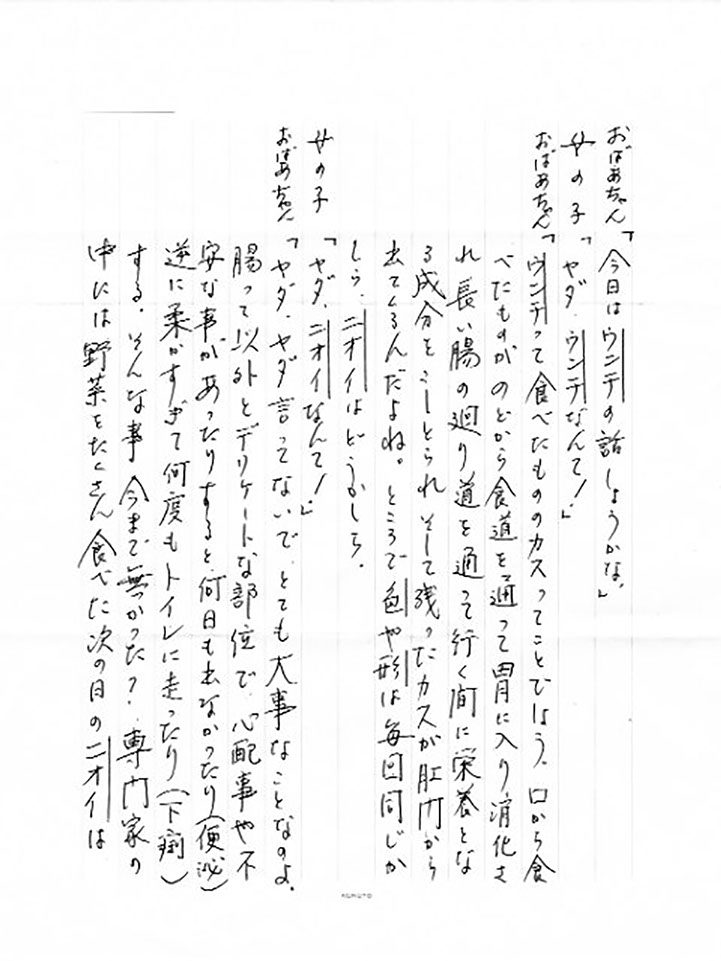 おばあちゃん「今日はウンチの話しようかな。」
女の子「ヤダ、ウンチなんて!」
おばあちゃん「ウンチって食べたもののカスってことでしょう、口から食
べたものがのどから食道を通って胃に入り消化さ
れ長い腸の廻り道を通って行く間に栄養とな
る成分をこしとられそして残ったカスが肛門から
出てくるんだよね。ところで色や形は毎回同じか
しら、ニオイはどうかしら、
女の子「ヤダ、ニオイなんて!」
おばあちゃん「ヤダ、ヤダ言ってないで、とても大事なことなのよ、
腸って以外とデリケートな部位で、心配事や不
安な事があったりすると何日も出なかったり(便泌)
逆に柔かすぎて何度もトイレに走ったり(下痢)
する。そんな事今まで無かった?専門家の
中には野菜をたくさん食べた次の日のニオイは
KOKUYO